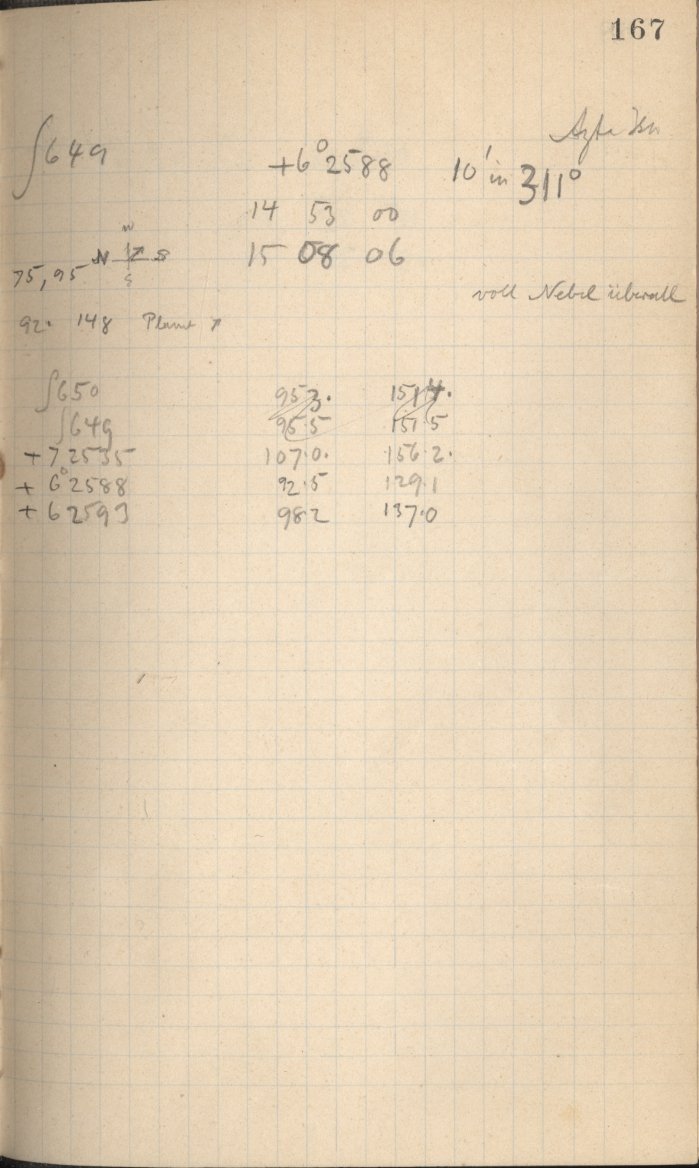 167
∫649 +6° 2588 10' in 311°
14 53 00
15 08 06
75, 95 N S
voll Nebel überall
92. 148 Planet ↗
∫650 95 3. 151 4.
∫649 95.5 151.5
+7 2535 107.0. 156.2.
+ 6° 2588 92.5 129.1
+ 6 2593 98.2 137.0